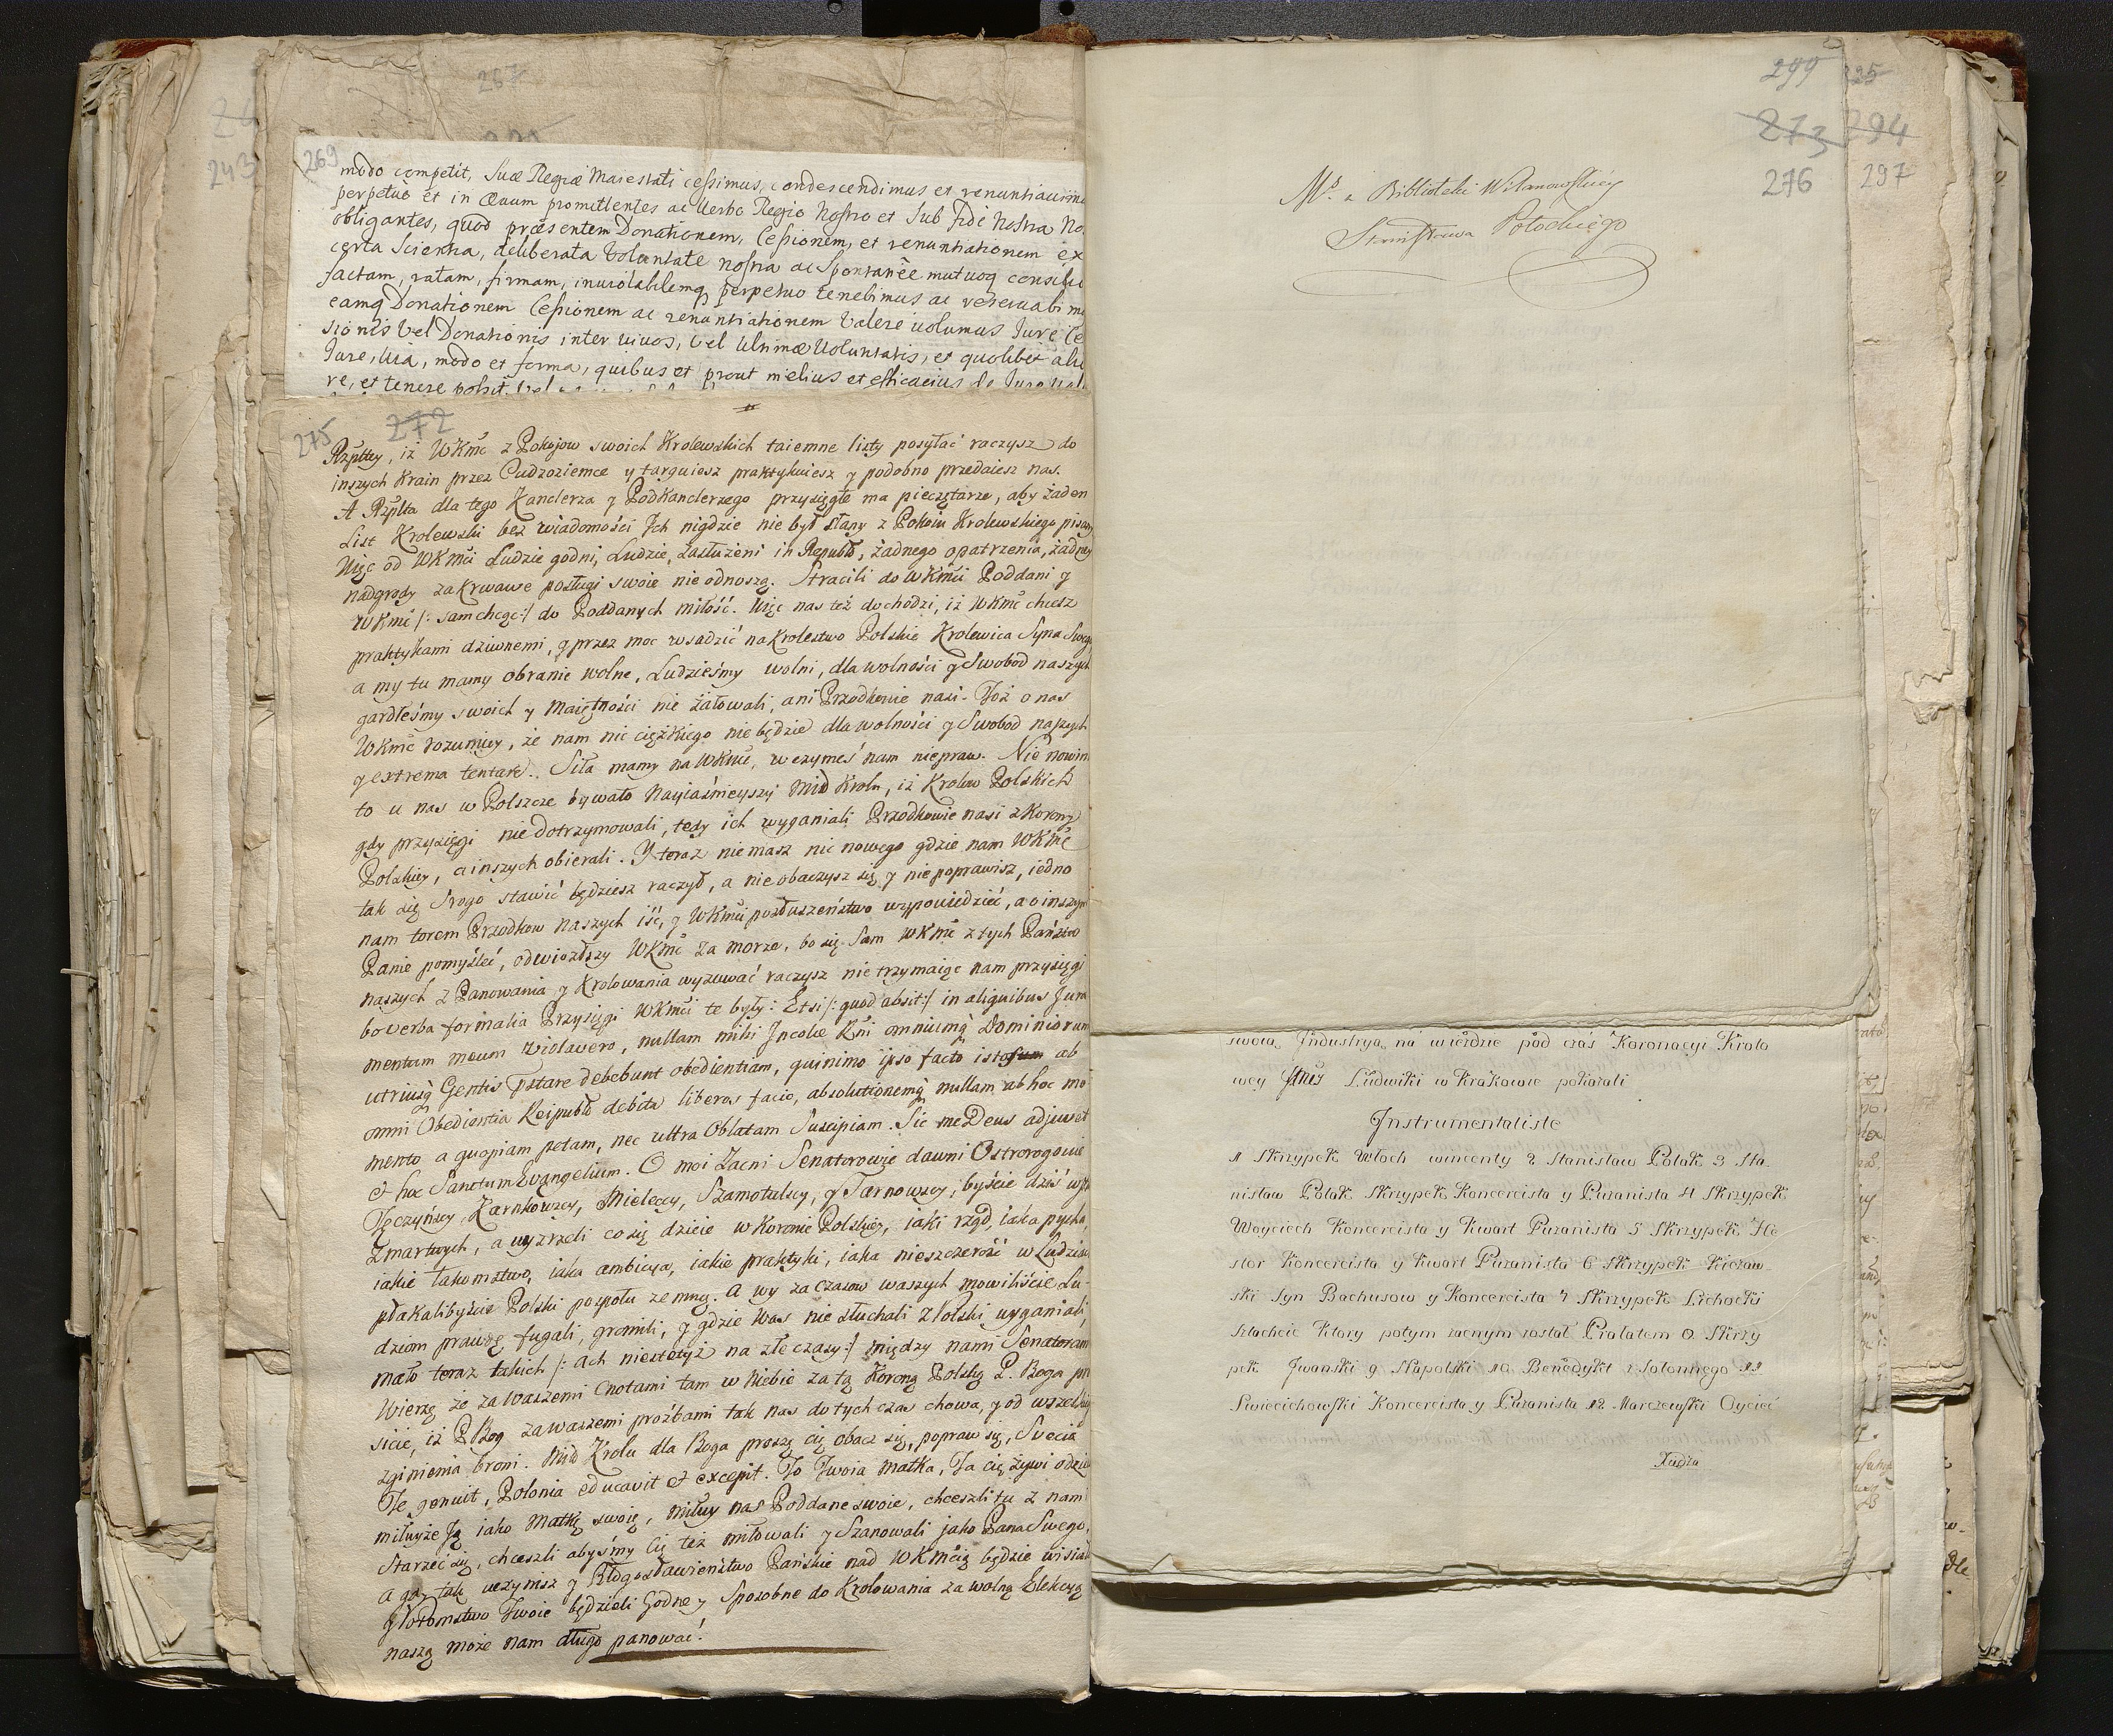 267
269
243
modo competit, Suæ Regiæ Maiestati cessimus, condescendimus et renuntiavimu
perpetuo et in ævum promittentes ac Verbo Regio Nostro et Sub Fide Nostra No.
obligantes, quod præsentem Donationem, Cessionem, et renuntiationem ex
certa Scientia, deliberata Voluntate nostra ac Spontanêe mutuoq consilio
factam, ratam, firmam, inuiolabilemq perpetuo tenebimus ac
eamq Donationem Cessionem ac renuntiationem Valere uolumus Jure Ce
sionis Vel Donationis inter uiuos, Vel Ultimæ Uoluntatis, et quolibet alio
Jure, Uia, modo et forma, quibus et prout melius et efficacius de Jure
re, et tenere possit, Vel
275 272
Rzpltey, iż WKmć z Pokojow swoich Krolewskich taiemne listy posyłać raczysz do
inszych Krain przez Cudzoziemce y targuiesz praktykuiesz y podobno przedaiesz nas.
A Rzplta dla tego Kanclerza y PodKanclerzego przysięgłe ma pieczętarze, aby żaden
List Krolewski bez wiadomości Jch nigdzie nie był słany z Pokoiu Krolewskiego pisany
Więc od WKmći Ludzie godni, Ludzie, zasłużeni in Republ, żadnego opatrzenia, żadney
nadgrody za krwawe posługi swoie nie odnoszą. Stracili do WKmći Poddani y
WKmć /: sam chcąc :/ do Poddanych miłość. Więc nas też dochodzi, iż WKmć chcesz
praktykami dziwnemi, y przez moc wsadzić na Krolestwo Polskie Krolewica Syna Swego
a my tu mamy obranie wolne, Ludzieśmy wolni, dla wolności y Swobod naszych
gardłeśmy swoich y Maiętności nie żałowali, ani Przodkowie nasi. Toż o nas
WKmć rozumiey, że nam nic ciężkiego nie będzie dla wolności y Swobod naszych
y extrema tentare. Siła mamy na WKmć, w czymeś nam niepraw. Nie nowin
to u nas w Polszcze bywało Nayiaśnieyszy Mił Krolu, iż Krolow Polskich
gdy przysięgi nie dotrzymowali, tedy ich wyganiali Przodkowie nasi z Korony
Polskiey, a inszych obierali. Y teraz nie masz nic nowego gdzie nam WKmć
tak się Srogo stawić będziesz raczył, a nie obaczysz się y nie poprawisz, iedno
nam torem Przodkow naszych iść, y WKmći posłuszeństwo wypowiedzieć, a o inszym
Panie pomyśleć, odwiozłszy WKmć za morze, bo się Sam WKmć z tych Państw
naszych z Panowania y Krolowania wyzuwać raczysz nie trzymaiąc nam przysięgi
bo verba formalia Przysięgi WKmći te były: Etsi /: quod absit :/ in aliquibus Jura
mentum meum violavero, nullam mihi Jncolæ Rni omniumq Dominiorum
utriusq Gentis pstare debebunt obedientiam, quinimo ipso facto istos ab
omni Obedientia Reipubl debita liberos facio, absolutionemq nullam ab hoc mo
mento a quopiam petam, nec ultra Oblatam Suscipiam. Sic me Deus adjuvet
et hoc Sanctum Evangelium. O moi Zacni Senatorowie dawni Ostrorogowie
Tęczyńscy, Karnkowscy, Mieleccy, Szamotulscy, y Tarnowscy, byście dziś wsta
Zmartwych, a uyzrzeli co się dzieie w Koronie Polskiey, iaki rząd, iaka pycha,
iakie łakomstwo, iaka ambicya, iakie praktyki, iaka nieszczerość w Ludziach
płakalibyście Polski pospołu ze mną. A wy za Czasow waszych mowiliście Lu-
dziom prawdę, fugali, gromili, y gdzie Was nie słuchali z Polski wyganiali,
mało teraz takich /: Ach niestetyż na złe czasy :/ między nami Senatorami
Wierzę że za Waszemi Cnotami tam w Niebie za tą Koroną Polską P. Boga pro
sicie, iż P Bog za waszemi proźbami tak nas do tych czas chowa, y od wszelkieg
zginienia broni. Mił Krolu dla Boga proszę cię obacz się, popraw się, Svecia
Te genuit, Polonia educavit et excepit. To Twoia Matka, Ta cię żywi odziew
miłuyże Ją iako Matkę swoię, miłuy nas Poddane swoie, chceszli tu z nami
Starzeć się, chceszli abyśmy Cię też miłowali y Szanowali jako Pana Swego.
A gdy tak uczynisz y Błogosławieństwo Pańskie nad WKmćią będzie wisiało
y Potomstwo Twoie będzieli Godne y Sposobne do Krolowania za wolną Elekcyą
naszą może nam długo panować!
299 325
273 294
276 297
Ms. z Biblioteki Wilanowskiéj
Stanisława Potockiego
swoią Jndustryą na wieżdzie pod czas Koronacyi Krolo
wey Jmći Ludwiki w Krakowie pokazali
Jnstrumentaliste
1 Skrzypek Włoch wincenty 2 Stanisław Polak 3 Sta-
nisław Polak Skrzypek Koncercista y Puzanista 4 Skrzypek
Woyciech Koncercista y Kwart Puzanista 5 Skrzypek He
stor Koncercista y Kwart Puzanista 6 Skrzypek Kiczaw-
ski Syn Bachusow y Koncercista 7 Skrzypek Lichocki
szlachcic ktory potym zacnym został Prałatem 8 Skrzy
pek Jwanski 9 Słupolski 10 Benedykt z Solonnego 11
Swiecichowski Koncercista y Puzanista 12 Marczewski Oyciec
Xiędza